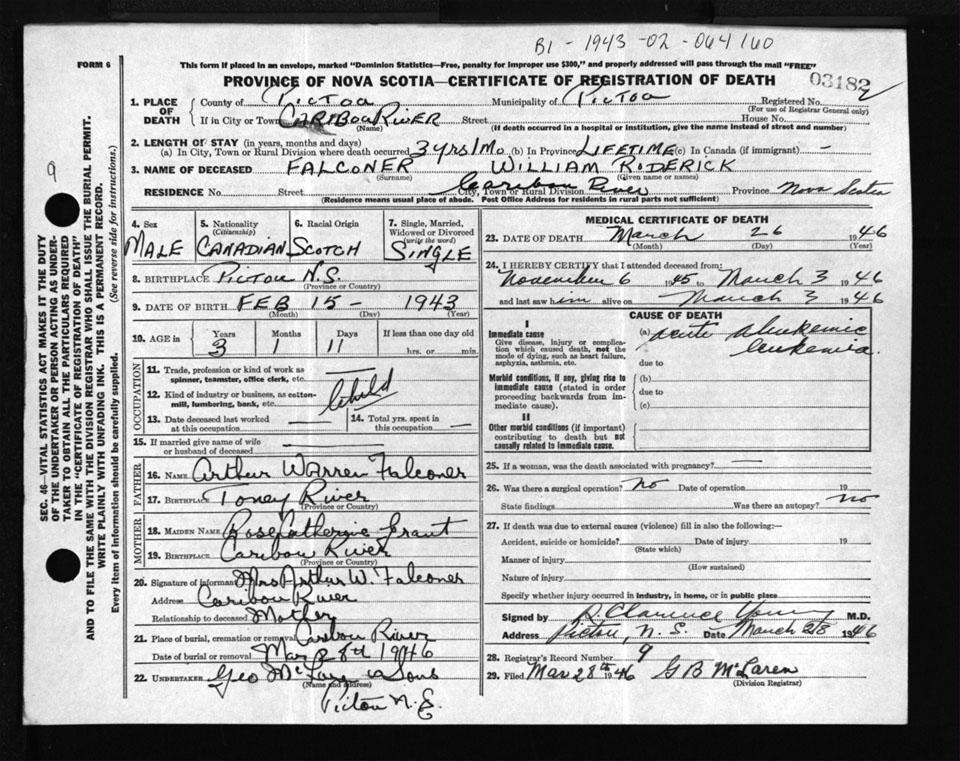 B1 - 1943 - 02 - 064160
FORM 6
This form if placed in an envelope, marked "Dominion Statistics—Free, penalty for improper use $300," and properly addressed will pass through the mail "FREE"
PROVINCE OF NOVA SCOTIA—CERTIFICATE OF REGISTRATION OF DEATH
03182
1. PLACE OF DEATH
County of PICTOU Municipality of PICTOU Registered No.
(For use of Registrar General only)
If in City or Town CARIBOU RIVER Street House No.
(Name) (If death occurred in a hospital or institution, give the name instead of street and number)
2. LENGTH OF STAY (in years, months and days)
(a) In City, Town or Rural Division where death occurred 3 yrs 1 Mo (b) In Province LIFETIME (c) In Canada (if immigrant) —
3. NAME OF DECEASED FALCONER WILLIAM RODERICK
(Surname) (Given name or names)
RESIDENCE No. Street Caribou River Province Nova Scotia
City, Town or Rural Division
(Residence means usual place of abode. Post Office Address for residents in rural parts not sufficient)
4. Sex MALE
5. Nationality (Citizenship) CANADIAN
6. Racial Origin SCOTCH
7. Single, Married, Widowed or Divorced (write the word) SINGLE
8. BIRTHPLACE PICTOU N.S.
(Province or Country)
9. DATE OF BIRTH FEB 15 - 1943
(Month) (Day) (Year)
10. AGE in Years 3 Months 1 Days 11 If less than one day old hrs. or min.
OCCUPATION
11. Trade, profession or kind of work as spinner, teamster, office clerk, etc. —
12. Kind of industry or business, as cotton-mill, lumbering, bank, etc. Child
13. Date deceased last worked at this occupation —
14. Total yrs. spent in this occupation —
15. If married give name of wife or husband of deceased —
FATHER
16. NAME Arthur Warren Falconer
17. BIRTHPLACE Toney River
(Province or Country)
MOTHER
18. MAIDEN NAME Rose Catherine Grant
19. BIRTHPLACE Caribou River
(Province or Country)
20. Signature of informant Mrs Arthur W. Falconer
Address Caribou River
Relationship to deceased Mother
21. Place of burial, cremation or removal Caribou River
Date of burial or removal Mar 28th 1946
22. UNDERTAKER Geo McLaren & Sons
(Name and address)
Pictou N.S.
MEDICAL CERTIFICATE OF DEATH
23. DATE OF DEATH March 26 1946
(Month) (Day) (Year)
24. I HEREBY CERTIFY that I attended deceased from:
November 6 1945 to March 3 1946
and last saw him alive on March 3 1946
CAUSE OF DEATH
I
Immediate cause
Give disease, injury or complication which caused death, not the mode of dying, such as heart failure, asphyxia, asthenia, etc.
(a) acute aleukemic leukemia.
due to
Morbid conditions, if any, giving rise to immediate cause (stated in order proceeding backwards from immediate cause).
(b)
due to
(c)
II
Other morbid conditions (if important) contributing to death but not causally related to immediate cause.
25. If a woman, was the death associated with pregnancy? —
26. Was there a surgical operation? No Date of operation 19
State findings Was there an autopsy? no
27. If death was due to external causes (violence) fill in also the following:—
Accident, suicide or homicide? Date of injury 19
(State which)
Manner of injury
(How sustained)
Nature of injury
Specify whether injury occurred in industry, in home, or in public place
Signed by R. Clarence Young M.D.
Address Pictou, N.S. Date March 28 1946
28. Registrar's Record Number 9
29. Filed Mar 28th 1946 G B McLaren
(Division Registrar)
9
SEC. 46—VITAL STATISTICS ACT MAKES IT THE DUTY
OF THE UNDERTAKER OR PERSON ACTING AS UNDER-
TAKER TO OBTAIN ALL THE PARTICULARS REQUIRED
IN THE "CERTIFICATE OF REGISTRATION OF DEATH"
AND TO FILE THE SAME WITH THE DIVISION REGISTRAR WHO SHALL ISSUE THE BURIAL PERMIT.
WRITE PLAINLY WITH UNFADING INK. THIS IS A PERMANENT RECORD.
Every item of information should be carefully supplied. (See reverse side for instructions.)